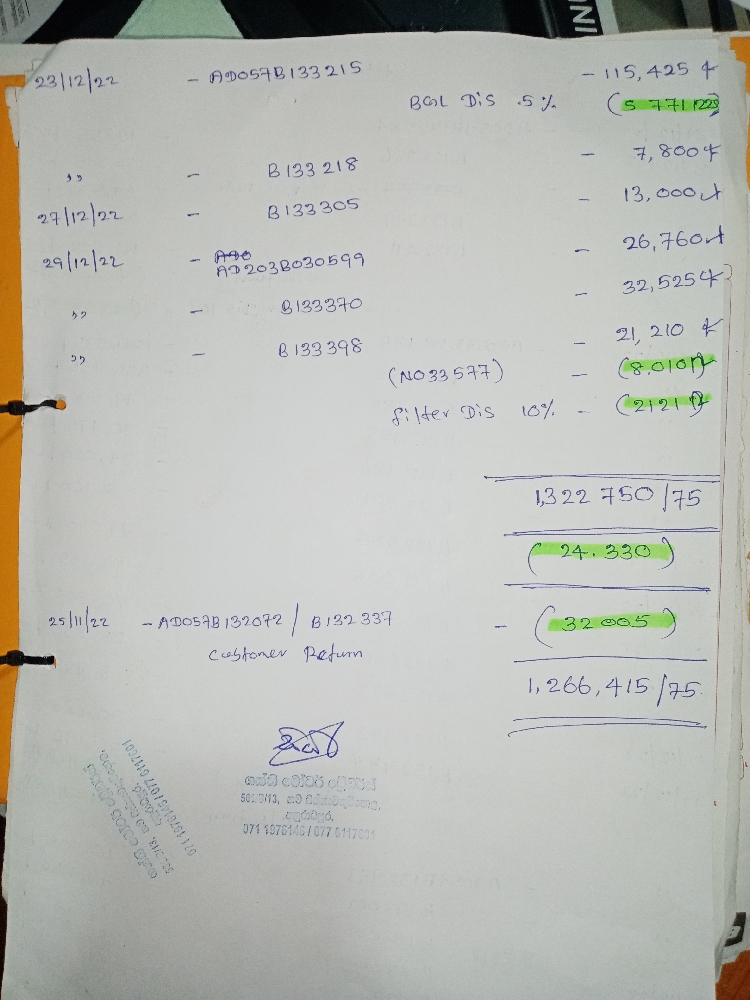 23/12/22 - AD057B133215 - 115,425
BGL Dis .5% (5 771 /25)
,, - B133218 - 7,800
27/12/22 - B133305 - 13,000
29/12/22 - AD203B030599 - 26,760
,, - B133370 - 32,525
,, - B133398 - 21,210
(NO33577) - (8,010)
filter Dis 10% - (2121)
1,322 750/75
(24.330)
25/11/22 - AD057B132072 / B132337 - (32005)
Custoner Return
1,266,415/75
071 1876146 / 077 6117601